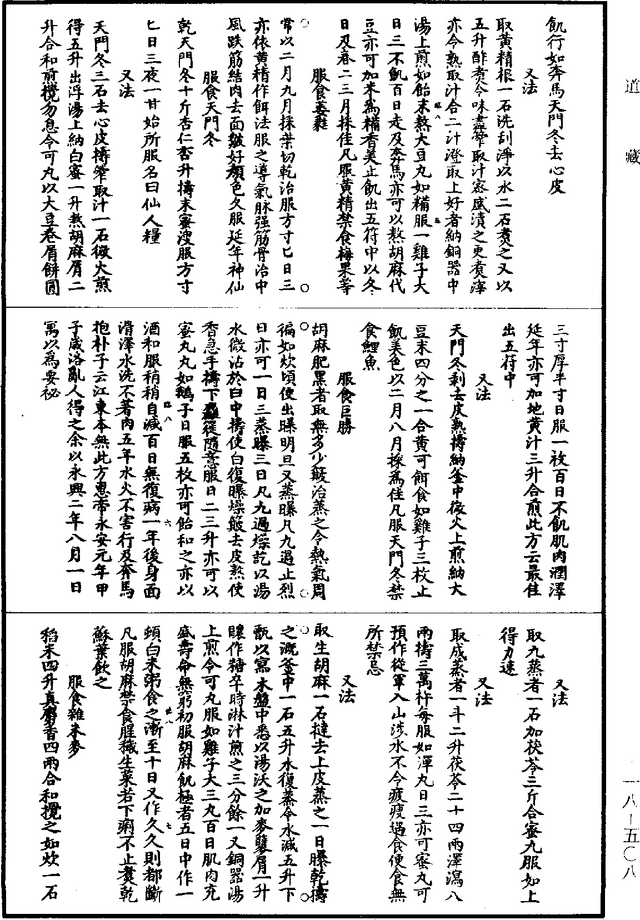 道藏
飢行如奔馬天門冬去心皮
又法
取黃精根一石洗刮淨以水二石煮之又以
五升酢煮令味盡窄取汁密盛漬之更煮滓
亦令熟取汁合二汁澄取上好者納銅器中
湯上煎如飴末熬大豆丸如糒服一雞子大
日三不飢百日走及奔馬亦可以熬胡麻代
豆亦可加米為糒香美止飢出五符中以冬
日及春二三月採佳凡服黃精禁食梅果等
服食萎蕤
常以二月九月採葉切乾治服方寸匕日三
亦依黃精作餌法服之導氣脉強筋骨治中
風跌筋結肉去面皺好顏色久服延年神仙
服食天門冬
乾天門冬十斤杏仁壹升擣末蜜溲服方寸
匕日三夜一甘始所服名曰仙人糧
又法
天門冬三石去心皮擣窄取汁一石微火煎
得五升出浮湯上納白蜜一升熬胡麻屑二
升合和煎攪勿息令可丸以大豆卷屑餅圓
三寸厚半寸日服一枚百日不飢肌肉潤澤
延年亦可加地黃汁三升合煎此方云最佳
出五符中
又法
天門冬剝去皮熟擣納釜中微火上煎納大
豆末四分之一合黃可餌食如雞子三枚止
飢美色以二月八月採為佳凡服天門冬禁
食鯉魚
服食巨勝
胡麻肥黑者取無多少簸治蒸之令熱氣周
徧如炊頃便出曝明旦又蒸曝凡九過止烈
日亦可一日三蒸曝三日凡九過燥訖以湯
水微沾於臼中擣使白復曝燥簸去皮熬使
香急手擣下麤篵隨意服日二三升亦可以
蜜丸丸如鷄子日服五枚亦可飴和之亦以
酒和服稍稍自減百日無復病一年後身面
滑澤水洗不著肉五年水火不害行及奔馬
抱朴子云江東本無此方惠帝永安元年甲
子歲洛亂人得之余以永興二年八月一日
寫以為要祕
又法
取九蒸者一石加茯苓三斤合蜜九服如上
得力速
又法
取成蒸者一斗二升茯苓二十四兩澤瀉八
兩擣三萬杵每服如彈丸日三亦可蜜丸可
預作從軍入山涉水不令疲瘦過食便食無
所禁忌
又法
取生胡麻一石撻去上皮蒸之一日曝乾擣
之溉釜中一石五升水復蒸令水減五升下
甑以寫木盤中悉以湯沃之加麥蘖屑一升
釀作糖卒時淋汁煎之三分餘一又銅器湯
上煎令可丸服如雞子大三丸百日肌肉充
盛壽命無窮初服胡麻飢極者五日中作一
頓白米粥食之漸至十日又作久久則都斷
凡服胡麻禁食腥穢生菜若下痢不止煑乾
蘇葉飲之
服食雜米麥
稻米四升真麝香四兩合和攪之如炊一石
一八—五〇八